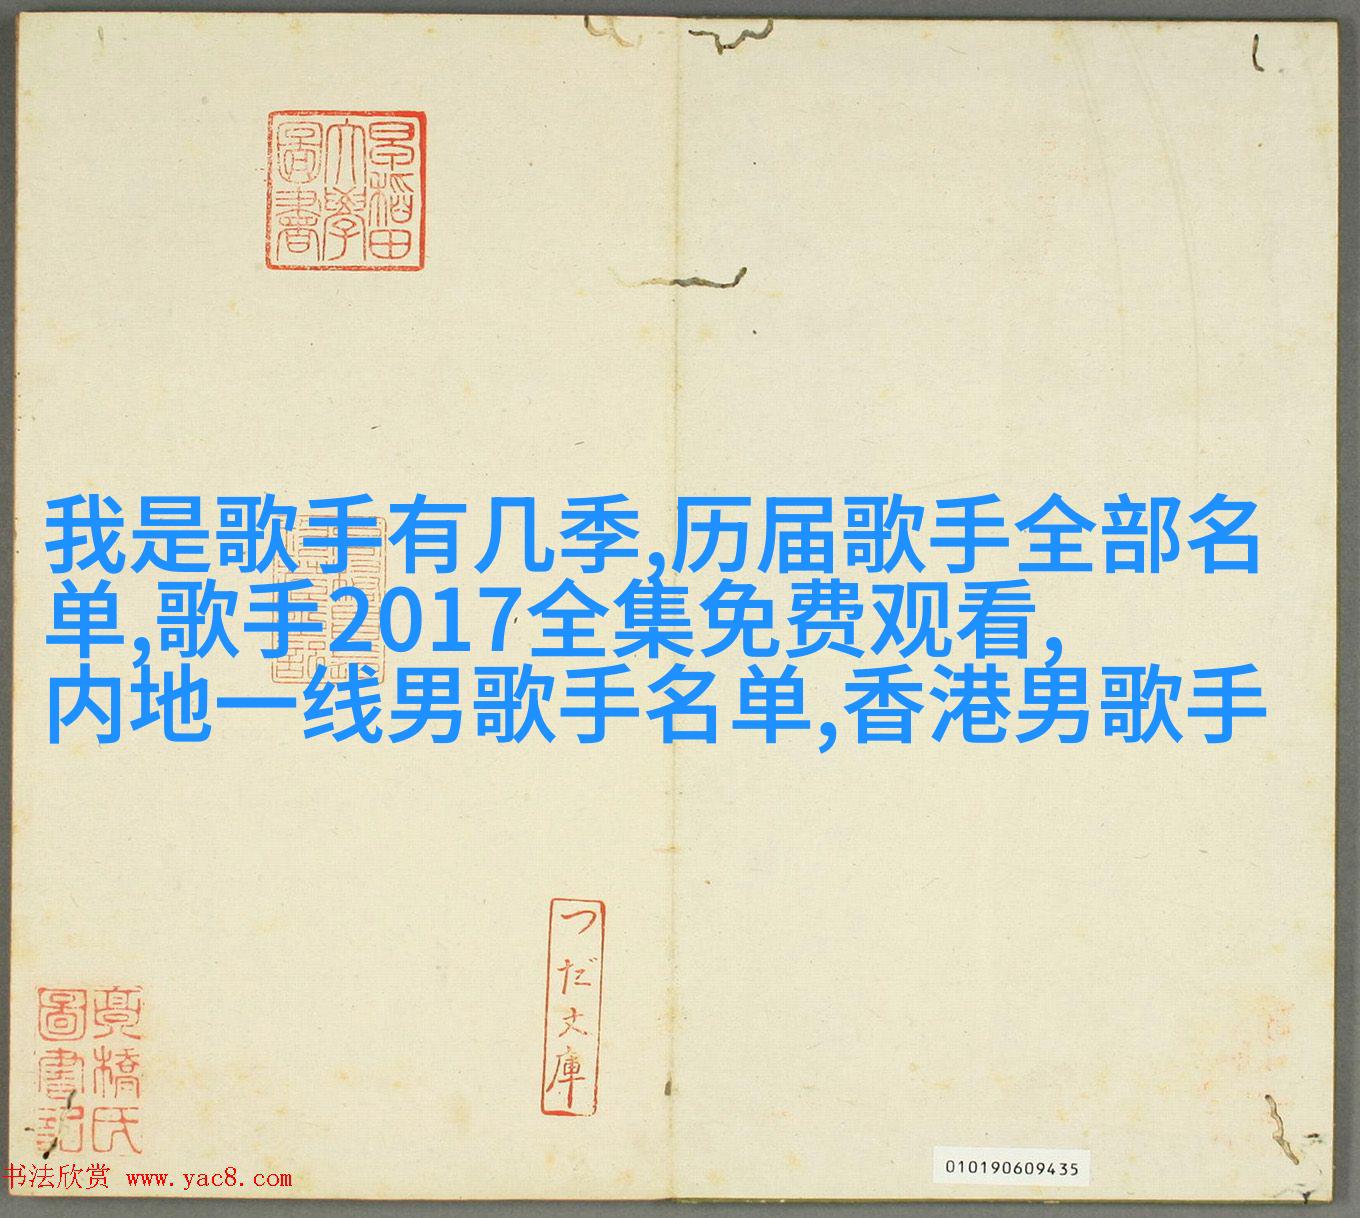 早稻田
大學
圖書
我是歌手有几季,历届歌手全部名
单,歌手2017全集免费观看,
内地一线男歌手名单,香港男歌手
つだ文庫
圖書記
010190609435
书法欣赏 www.yac8.com